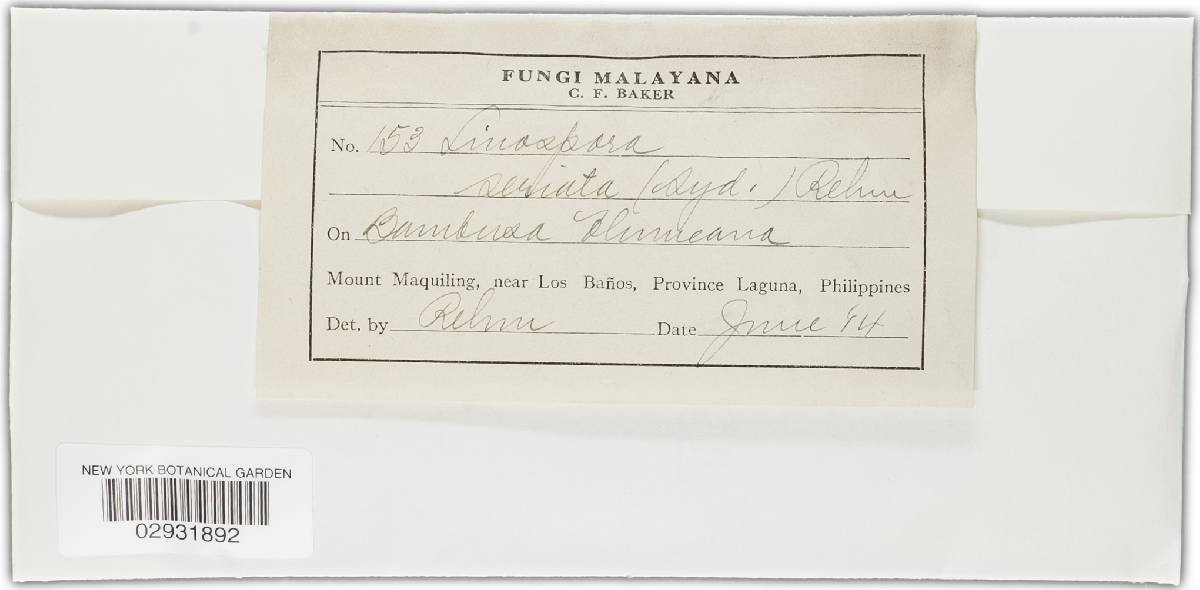 FUNGI MALAYANA
C. F. BAKER
No. 153 Linospora
seriata (Syd.) Rehm
On Bambusa Blumeana
Mount Maquiling, near Los Baños, Province Laguna, Philippines
Det. by Rehm Date June '14
NEW YORK BOTANICAL GARDEN
02931892